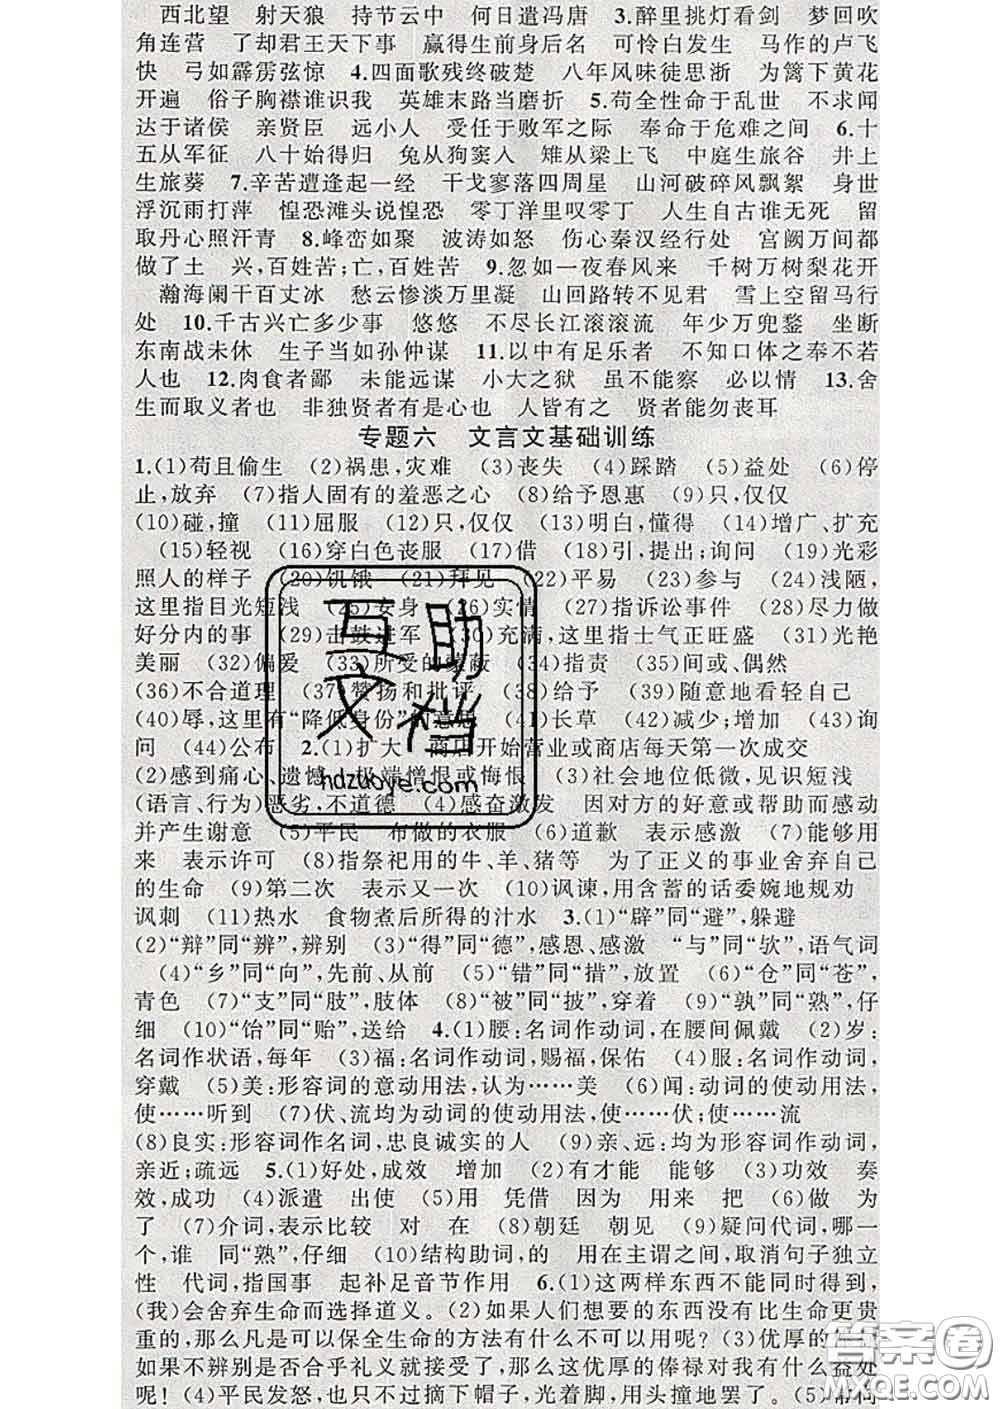 西北望　射天狼　持节云中　何日遣冯唐　3.醉里挑灯看剑　梦回吹
角连营　了却君王天下事　赢得生前身后名　可怜白发生　马作的卢飞
快　弓如霹雳弦惊　4.四面歌残终破楚　八年风味徒思浙　为篱下黄花
开遍　俗子胸襟谁识我　英雄末路当磨折　5.苟全性命于乱世　不求闻
达于诸侯　亲贤臣　远小人　受任于败军之际　奉命于危难之间　6.十
五从军征　八十始得归　兔从狗窦入　雉从梁上飞　中庭生旅谷　井上
生旅葵　7.辛苦遭逢起一经　干戈寥落四周星　山河破碎风飘絮　身世
浮沉雨打萍　惶恐滩头说惶恐　零丁洋里叹零丁　人生自古谁无死　留
取丹心照汗青　8.峰峦如聚　波涛如怒　伤心秦汉经行处　宫阙万间都
做了土　兴,百姓苦;亡,百姓苦　9.忽如一夜春风来　千树万树梨花开
瀚海阑干百丈冰　愁云惨淡万里凝　山回路转不见君　雪上空留马行
处　10.千古兴亡多少事　悠悠　不尽长江滚滚流　年少万兜鍪　坐断
东南战未休　生子当如孙仲谋　11.以中有足乐者　不知口体之奉不若
人也　12.肉食者鄙　未能远谋　小大之狱　虽不能察　必以情　13.舍
生而取义者也　非独贤者有是心也　人皆有之　贤者能勿丧耳
专题六　文言文基础训练
1.(1)苟且偷生　(2)祸患,灾难　(3)丧失　(4)踩踏　(5)益处　(6)停
止,放弃　(7)指人固有的羞恶之心　(8)给予恩惠　(9)只,仅仅
(10)碰,撞　(11)屈服　(12)只,仅仅　(13)明白,懂得　(14)增广、扩充
(15)轻视　(16)穿白色丧服　(17)借　(18)引,提出;询问　(19)光彩
照人的样子　(20)饥饿　(21)拜见　(22)平易　(23)参与　(24)浅陋,
这里指目光短浅　(25)安身　(26)实情　(27)指诉讼事件　(28)尽力做
好分内的事　(29)击鼓进军　(30)充满,这里指士气正旺盛　(31)光艳
美丽　(32)偏爱　(33)所受的蒙蔽　(34)指责　(35)间或、偶然
(36)不合道理　(37)赞扬和批评　(38)给予　(39)随意地看轻自己
(40)辱,这里有“降低身份”的意思　(41)长草　(42)减少;增加　(43)询
问　(44)公布　2.(1)扩大　商店开始营业或商店每天第一次成交
(2)感到痛心、遗憾　极端憎恨或悔恨　(3)社会地位低微,见识短浅
(语言、行为)恶劣,不道德　(4)感奋激发　因对方的好意或帮助而感动
并产生谢意　(5)平民　布做的衣服　(6)道歉　表示感激　(7)能够用
来　表示许可　(8)指祭祀用的牛、羊、猪等　为了正义的事业舍弃自己
的生命　(9)第二次　表示又一次　(10)讽谏,用含蓄的话委婉地规劝
讽刺　(11)热水　食物煮后所得的汁水　3.(1)“辟”同“避”,躲避
(2)“辩”同“辨”,辨别　(3)“得”同“德”,感恩、感激　“与”同“欤”,语气词
(4)“乡”同“向”,先前、从前　(5)“错”同“措”,放置　(6)“仓”同“苍”,
青色　(7)“支”同“肢”,肢体　(8)“被”同“披”,穿着　(9)“孰”同“熟”,仔
细　(10)“饴”同“贻”,送给　4.(1)腰:名词作动词,在腰间佩戴　(2)岁:
名词作状语,每年　(3)福:名词作动词,赐福,保佑　(4)服:名词作动词,
穿戴　(5)美:形容词的意动用法,认为……美　(6)闻:动词的使动用法,
使……听到　(7)伏、流均为动词的使动用法,使……伏;使……流
(8)良实:形容词作名词,忠良诚实的人　(9)亲、远:均为形容词作动词,
亲近;疏远　5.(1)好处,成效　增加　(2)有才能　能够　(3)功效　奏
效,成功　(4)派遣　出使　(5)用　凭借　因为　用来　把　(6)做　为
了　(7)介词,表示比较　对　在　(8)朝廷　朝见　(9)疑问代词,哪一
个,谁　同“熟”,仔细　(10)结构助词,的　用在主谓之间,取消句子独立
性　代词,指国事　起补足音节作用　6.(1)这两样东西不能同时得到,
(我)会舍弃生命而选择道义。(2)如果人们想要的东西没有比生命更贵
重的,那么凡是可以保全生命的方法有什么不可以用呢?(3)优厚的俸禄
如果不辨别是否合乎礼义就接受了,那么这优厚的俸禄对我有什么益处
呢!(4)平民发怒,也只不过摘下帽子,光着脚,用头撞地罢了。(5)
互助
文档
hdzuoye.com
答案圈
MXQE.COM